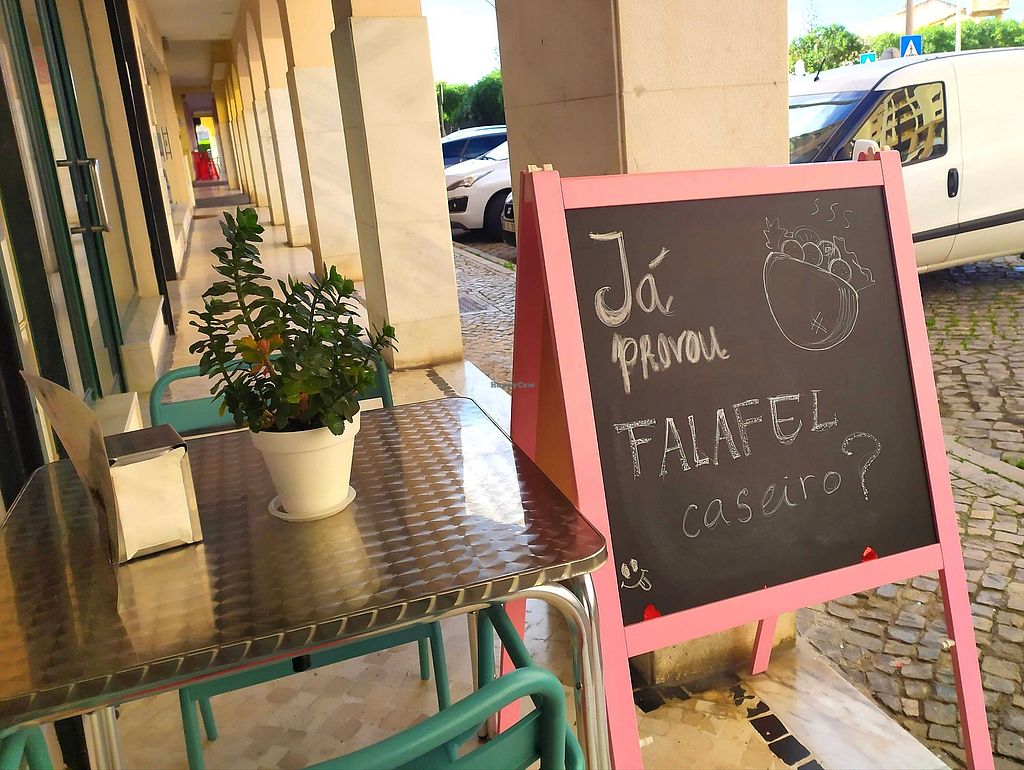 Já
PROVOU
FALAFEL
caseiro?
HappyCow